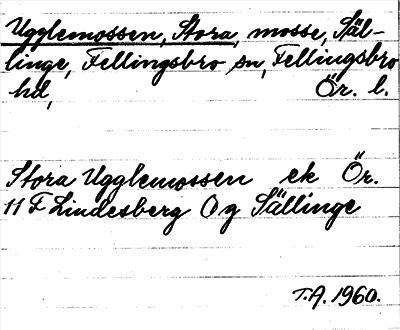 Ugglemossen, Stora, mosse, Säl-
linge, Fellingsbro sn, Fellingsbro
hd, Ör. l.
Stora Ugglemossen ek Ör.
11 F Lindesberg Og Sällinge
T.A. 1960.